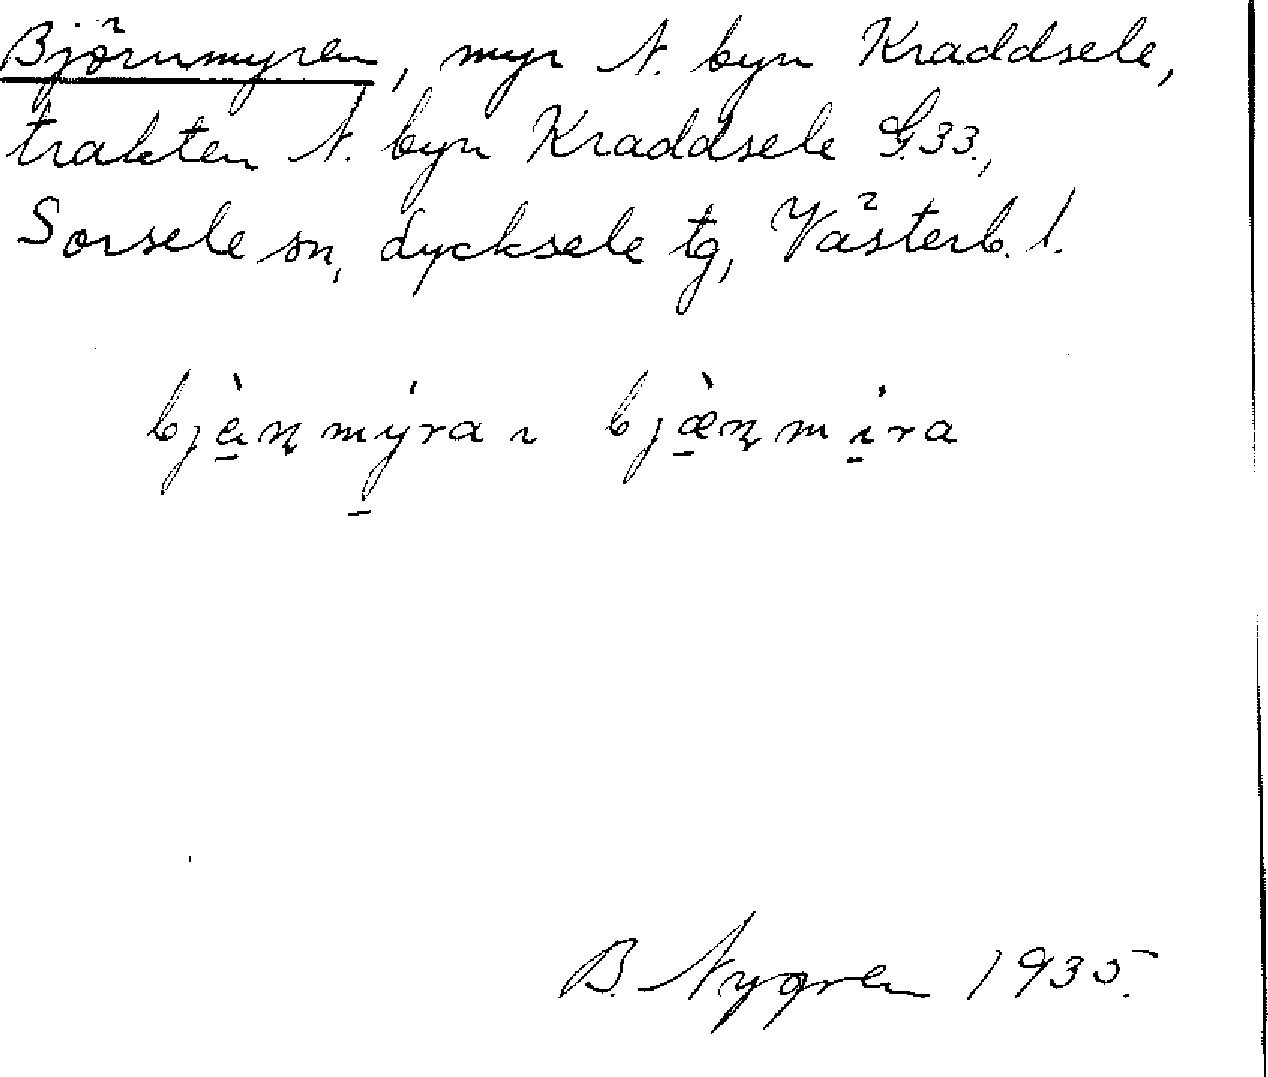 Björnmyren, myr N. byn Kraddsele,
trakten N. byn Kraddsele G.33.,
Sorsele sn, Lycksele tg, Västerb. l.
bjæ̠̀ɳmý̠ra ɩ bjæ̠̀ɳmí̠ra
B. Nygren 1935.